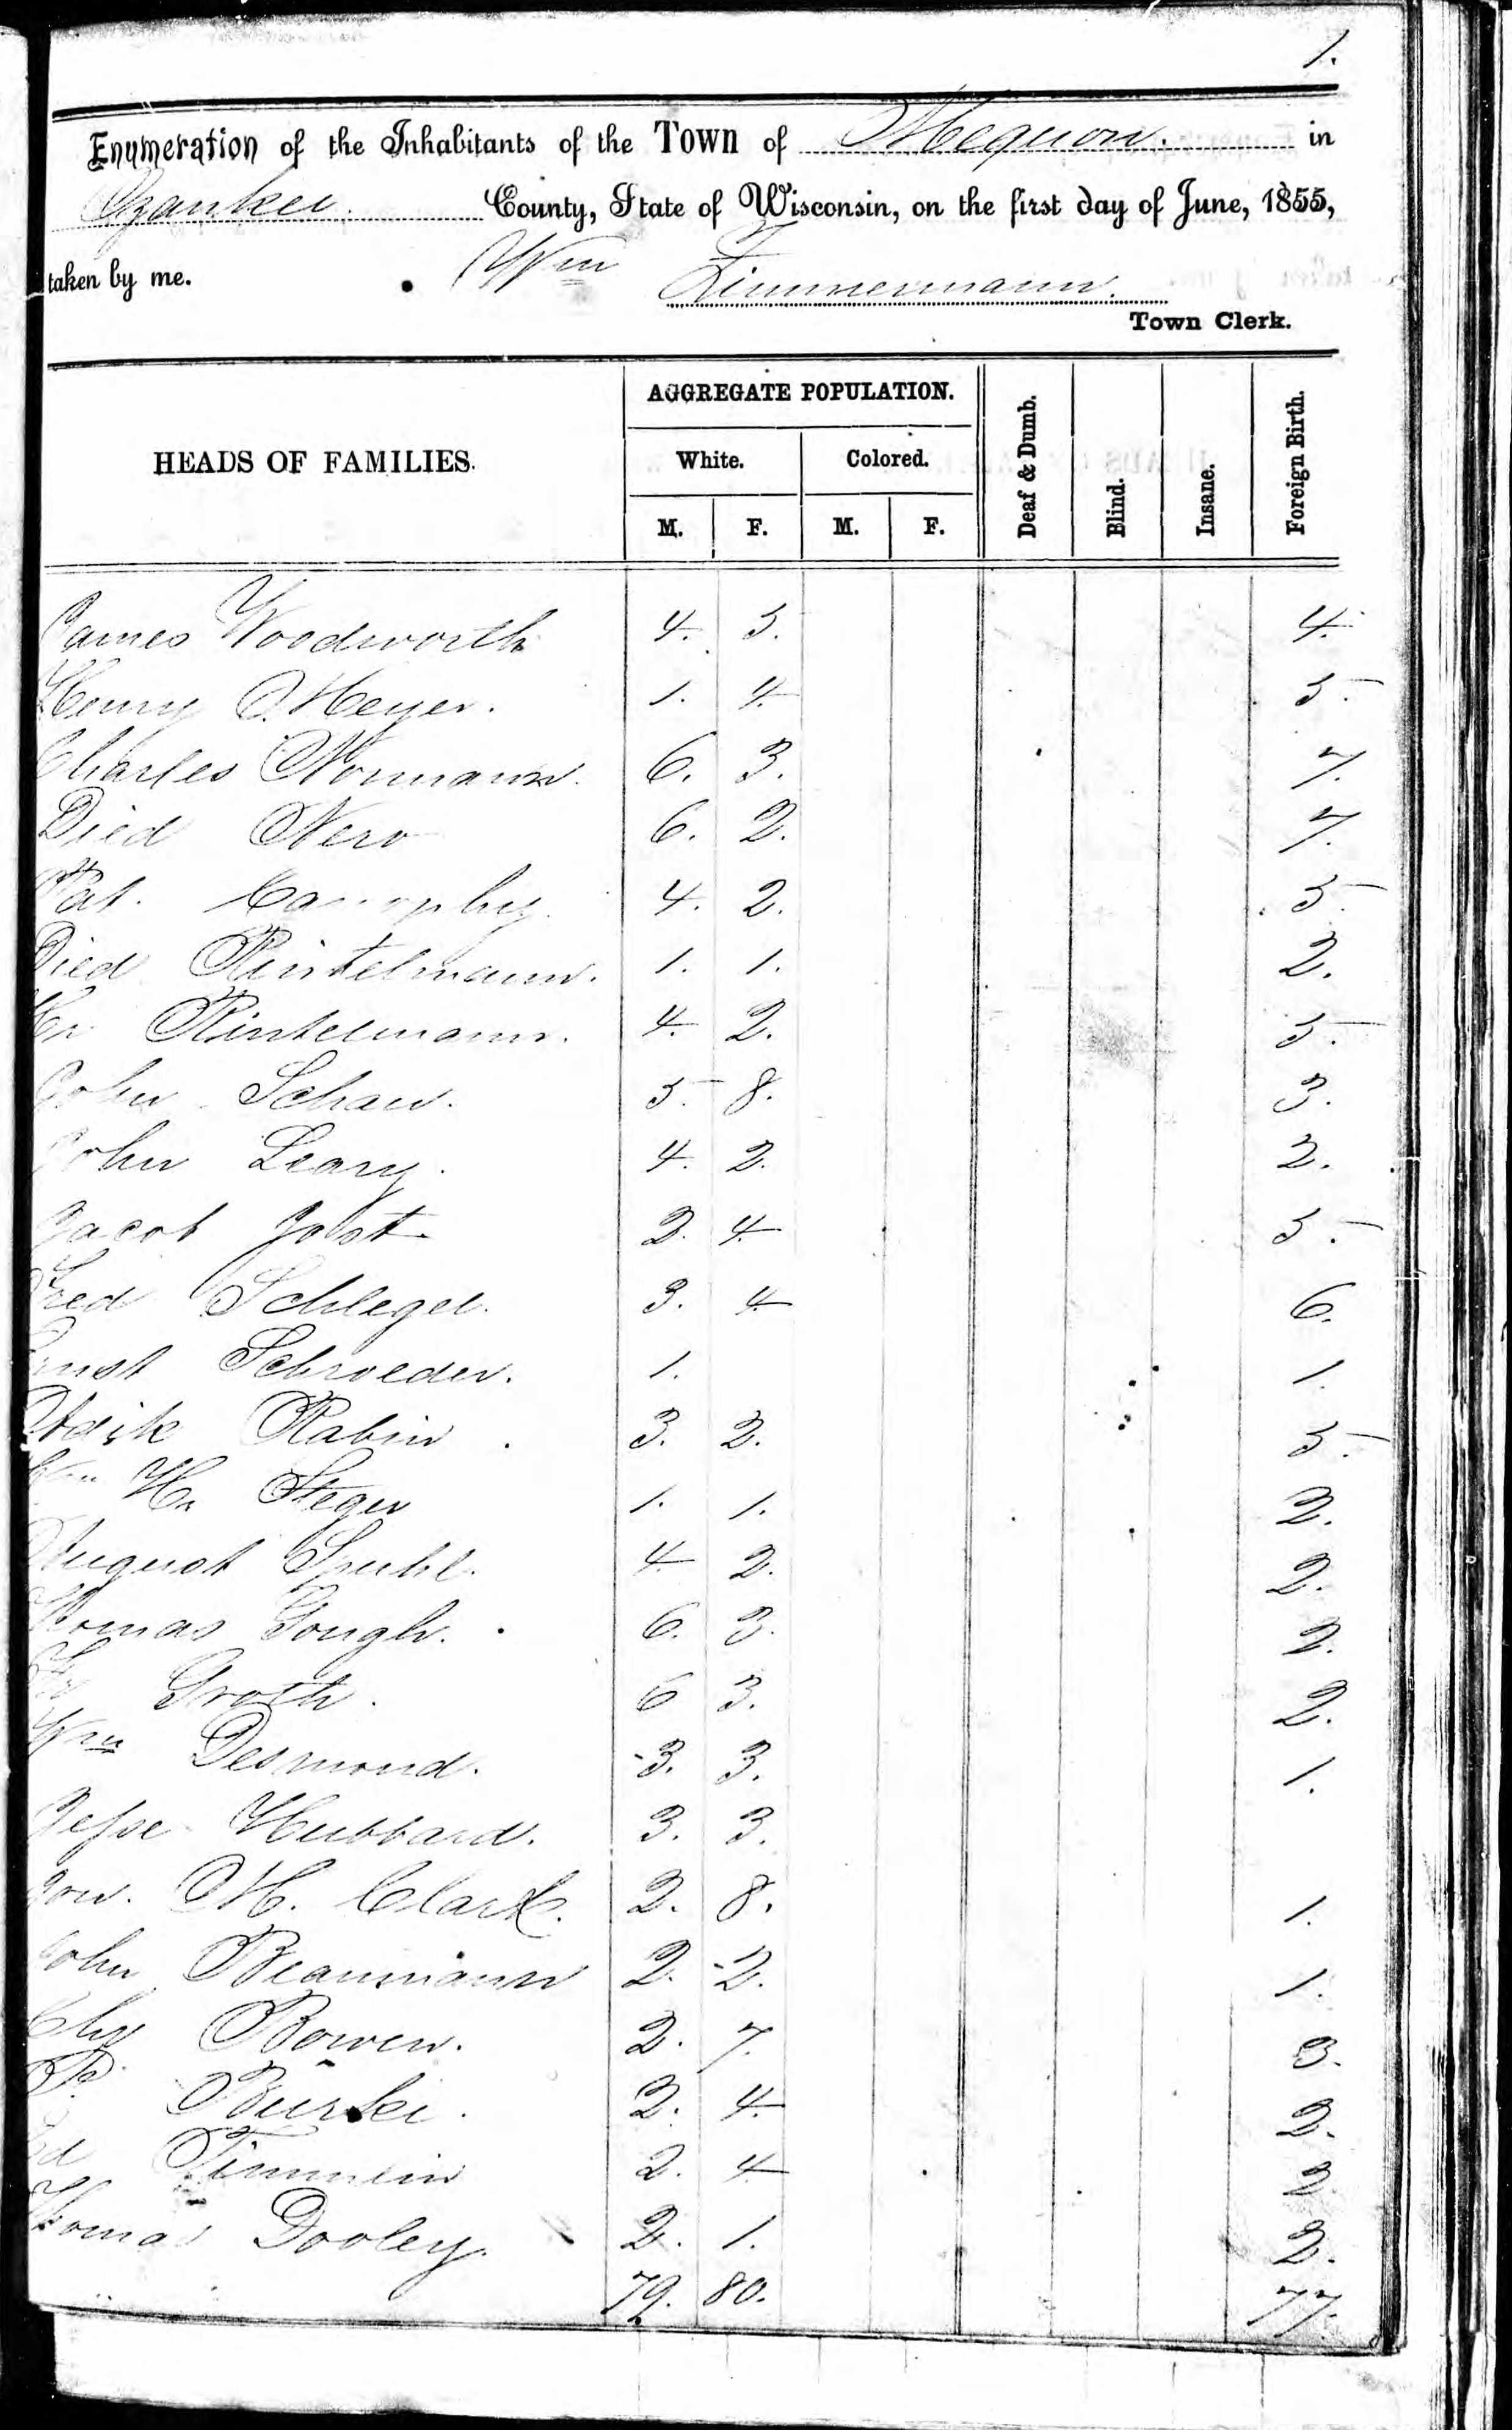 1.
Enumeration of the Inhabitants of the Town of Mequon. in
Ozaukee. County, State of Wisconsin, on the first day of June, 1855,
taken by me. Wm Zimmermann.
Town Clerk.
HEADS OF FAMILIES. AGGREGATE POPULATION. Deaf & Dumb. Blind. Insane. Foreign Birth.
White. Colored.
M. F. M. F.
James Woodworth 4. 5. 4.
Henry Meyer. 1. 4. 5.
Charles Normann. 6. 3. 7.
Died Nero 6. 2. 7.
Pat. 4. 2. 5.
Died Rintelmann. 1. 1. 2.
Hr Rintelmann. 4. 2. 5.
John Schaw. 5. 8. 3.
John Leary. 4. 2. 2.
Jacob Jobst. 2. 4. 5.
Fred Schlegel. 3. 4. 6.
Ernst Schroeder. 1. 1.
Rabin 3. 2. 5.
Hr Steger 1. 1. 2.
August Spuhl. 4. 2. 2.
Thomas Gough. 6. 3. 2.
Groth. 6 3. 2.
Wm Desmond. 3. 3. 1.
Jesse Hubbard. 3. 3.
Jon. M. Clark. 2. 8. 1.
John Beaumann 2. 2. 1.
Bowen. 2. 7. 3.
P. 2. 4. 2.
Ed Timmlin 2. 4 2
Thomas Dooley. 2. 1. 2.
79. 80. 77.